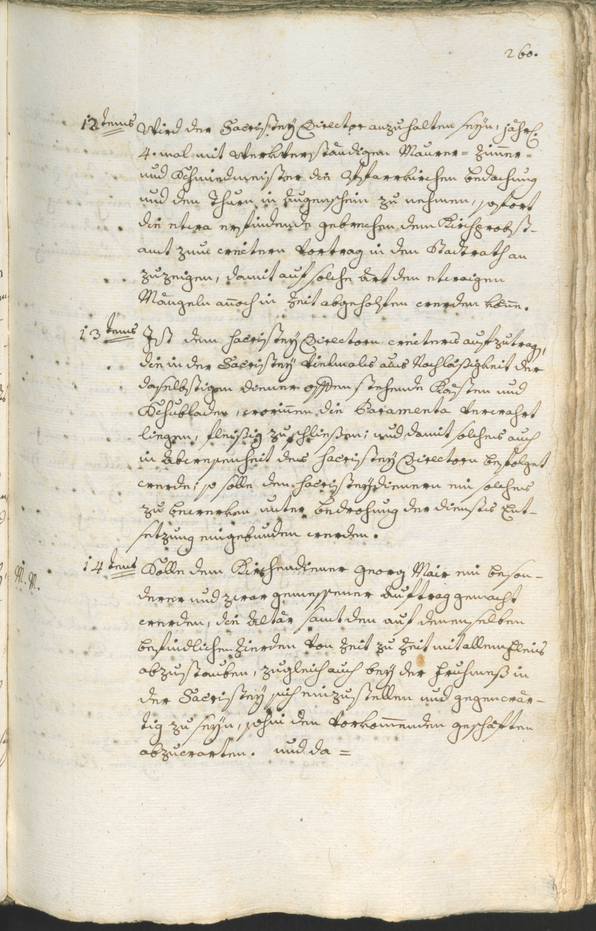 260.
12tens Wird der Sacristeÿ Director anzuhalten seÿn, jährl.
4. mal mit Werkverständigen Maurer= Zimer=
und Schmiedmeister die Pfarrkirchen bedachung
und den Thurn in Augenschein zu nehmen, sofort
die etwa erfindende gebrechen dem Kirchprobst=
amt zum weitern Vortrag in dem Stadtrath an
zuzeigen, damit auf solche Art den etwaigen
Mängeln annoch in Zeit abgeholfen werden könne.
13tens Ist dem Sacristeÿ Directorn weiters aufzutragen,
die in der Sacristeÿ vielmals aus Nachlässigkeit der
daselbstigen diener offen stehende Kästen und
Schubladen, worinnen die Paramenta verwahrt
liegen, fleissig zuschliessen; und damit solches auch
in Abwesenheit des Sacristeÿ Directorn befolget
werde; so solle den Sacristeÿdienern ein solches
zu bewerken unter bedrohung der dienstes Ent=
setzung eingebunden werden.
14tens Solle dem Kirchendiener Georg Mair ein beson=
derer und zwar gemessener Auftrag gemacht
N. N.
werden, die Altär samt den auf denenselben
befindlichen Zierden von Zeit zu Zeit mit allem fleis
abzustauben, zugleich auch beÿ der fruhmeß in
der Sacristeÿ sich einzustellen und gegenwär=
tig zu seÿn, sohin den vorkommenden geschäften
abzuwarten. und da =